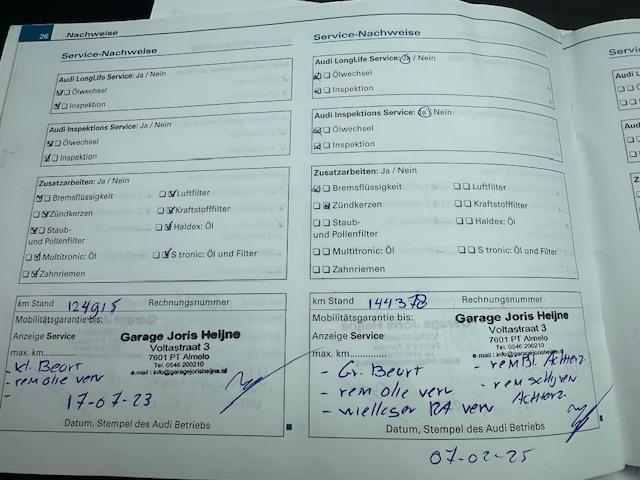 26 Nachweise
Service-Nachweise
Audi LongLife Service: Ja / Nein
Ölwechsel
Inspektion
Audi Inspektions Service: Ja / Nein
Ölwechsel
Inspektion
Zusatzarbeiten: Ja / Nein
Bremsflüssigkeit
Luftfilter
Zündkerzen
Kraftstofffilter
Staub-
und Pollenfilter
Haldex: Öl
Multitronic: Öl
S tronic: Öl und Filter
Zahnriemen
km Stand 124915 Rechnungsnummer
Mobilitätsgarantie bis:
Anzeige Service
max. km
Garage Joris Heijne
Voltastraat 3
7601 PT Almelo
Tel. 0546 200210
e.mail : info@garagejorisheijne.nl
- kl. Beurt
- rem olie verv
-
17-07-23
Datum, Stempel des Audi Betriebs
Service-Nachweise
Audi LongLife Service: Ja / Nein
Ölwechsel
Inspektion
Audi Inspektions Service: Ja / Nein
Ölwechsel
Inspektion
Zusatzarbeiten: Ja / Nein
Bremsflüssigkeit
Luftfilter
Zündkerzen
Kraftstofffilter
Staub-
und Pollenfilter
Haldex: Öl
Multitronic: Öl
S tronic: Öl und Filter
Zahnriemen
km Stand 144378 Rechnungsnummer
Mobilitätsgarantie bis:
Anzeige Service
max. km
Garage Joris Heijne
Voltastraat 3
7601 PT Almelo
Tel. 0546 200210
e.mail : info@garagejorisheijne.nl
- Gr. Beurt
- rem olie verv
- wiellager RA verv
- rem Bl. Achterz.
- rem schijven
Achterz.
Datum, Stempel des Audi Betriebs
07-02-25
Service
Audi
Audi
Zusatz